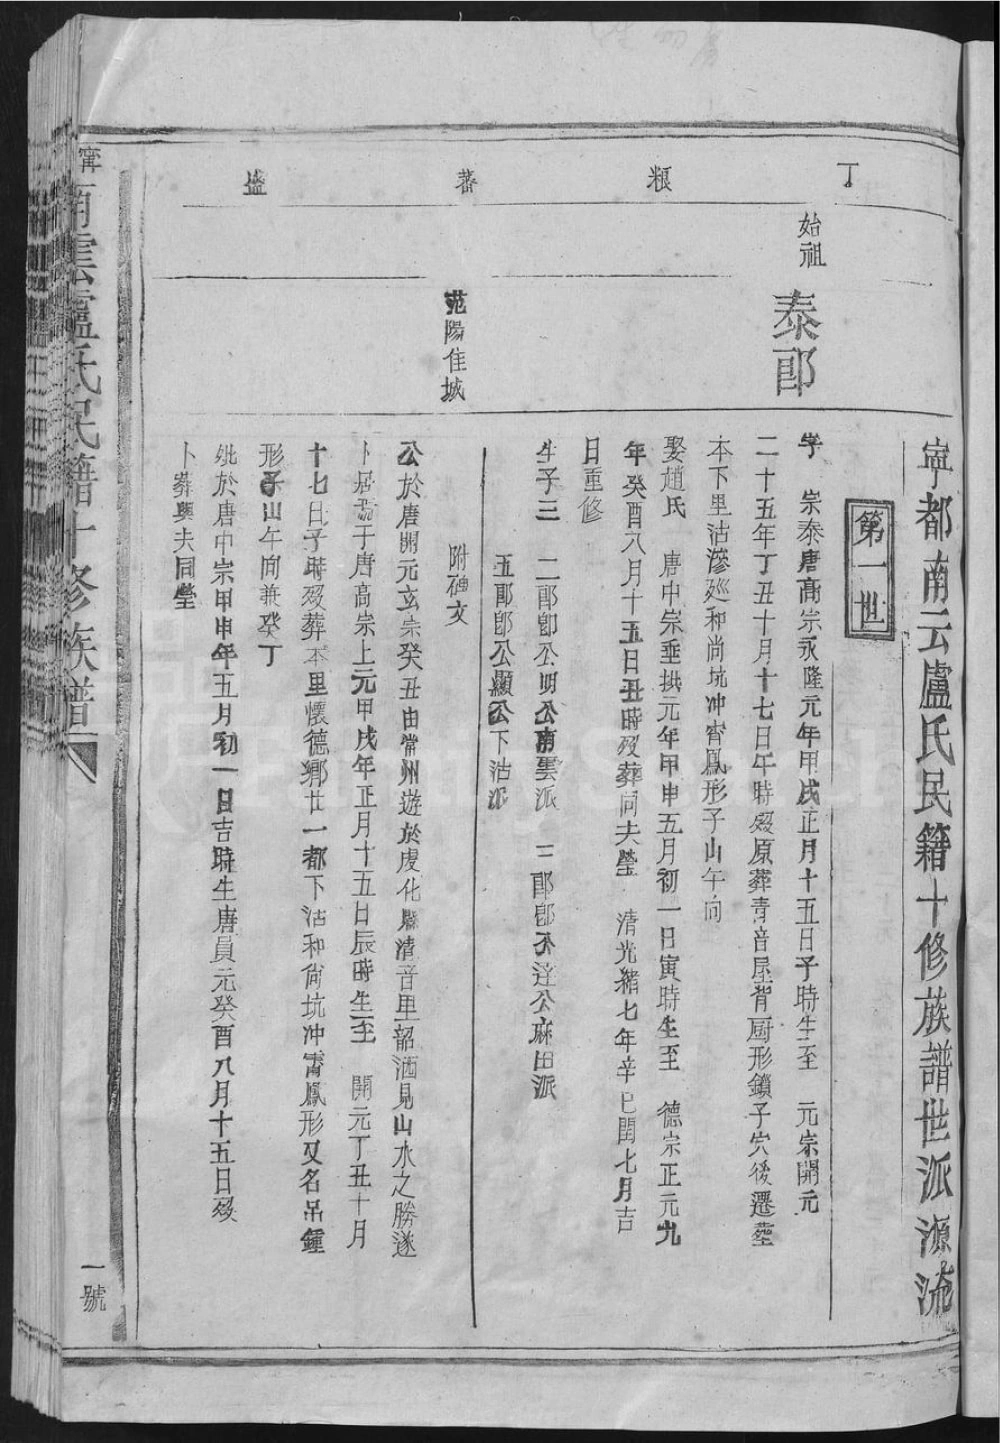 寧都南云盧氏民籍十修族譜世派源流
丁 粮 蕃 盛
第一世
始祖
泰郎
字 宗泰唐高宗永隆元年甲戌正月十五日子時生至 元宗開元
二十五年丁丑十月十七日午時歿原葬青音屋背廚形鎖子穴後遷葬
本下里沽滲廷和尚坑冲霄鳳形子山午向
娶趙氏 唐中宗垂拱元年甲申五月初一日寅時生至 德宗正元九
年癸酉八月十五日丑時歿葬同夫塋 清光緒七年辛巳閏七月吉
日重修
生子三 二郎即公明公南雲派 三郎即公达公麻田派
五郎即公顯公下沽派
范陽住城
附碑文
公於唐開元玄宗癸丑由常州遊於虔化縣清音里韶洒見山水之勝遂
卜居焉于唐高宗上元甲戌年正月十五日辰時生至 開元丁丑十月
十七日子時歿葬本里懷德鄉廿一都下沽和尚坑冲霄鳳形又名吊鐘
形子山午向兼癸丁
妣於唐中宗甲申年五月初一日吉時生唐貞元癸酉八月十五日歿
卜葬與夫同塋
寗南雲盧氏民籍十修族譜
一號